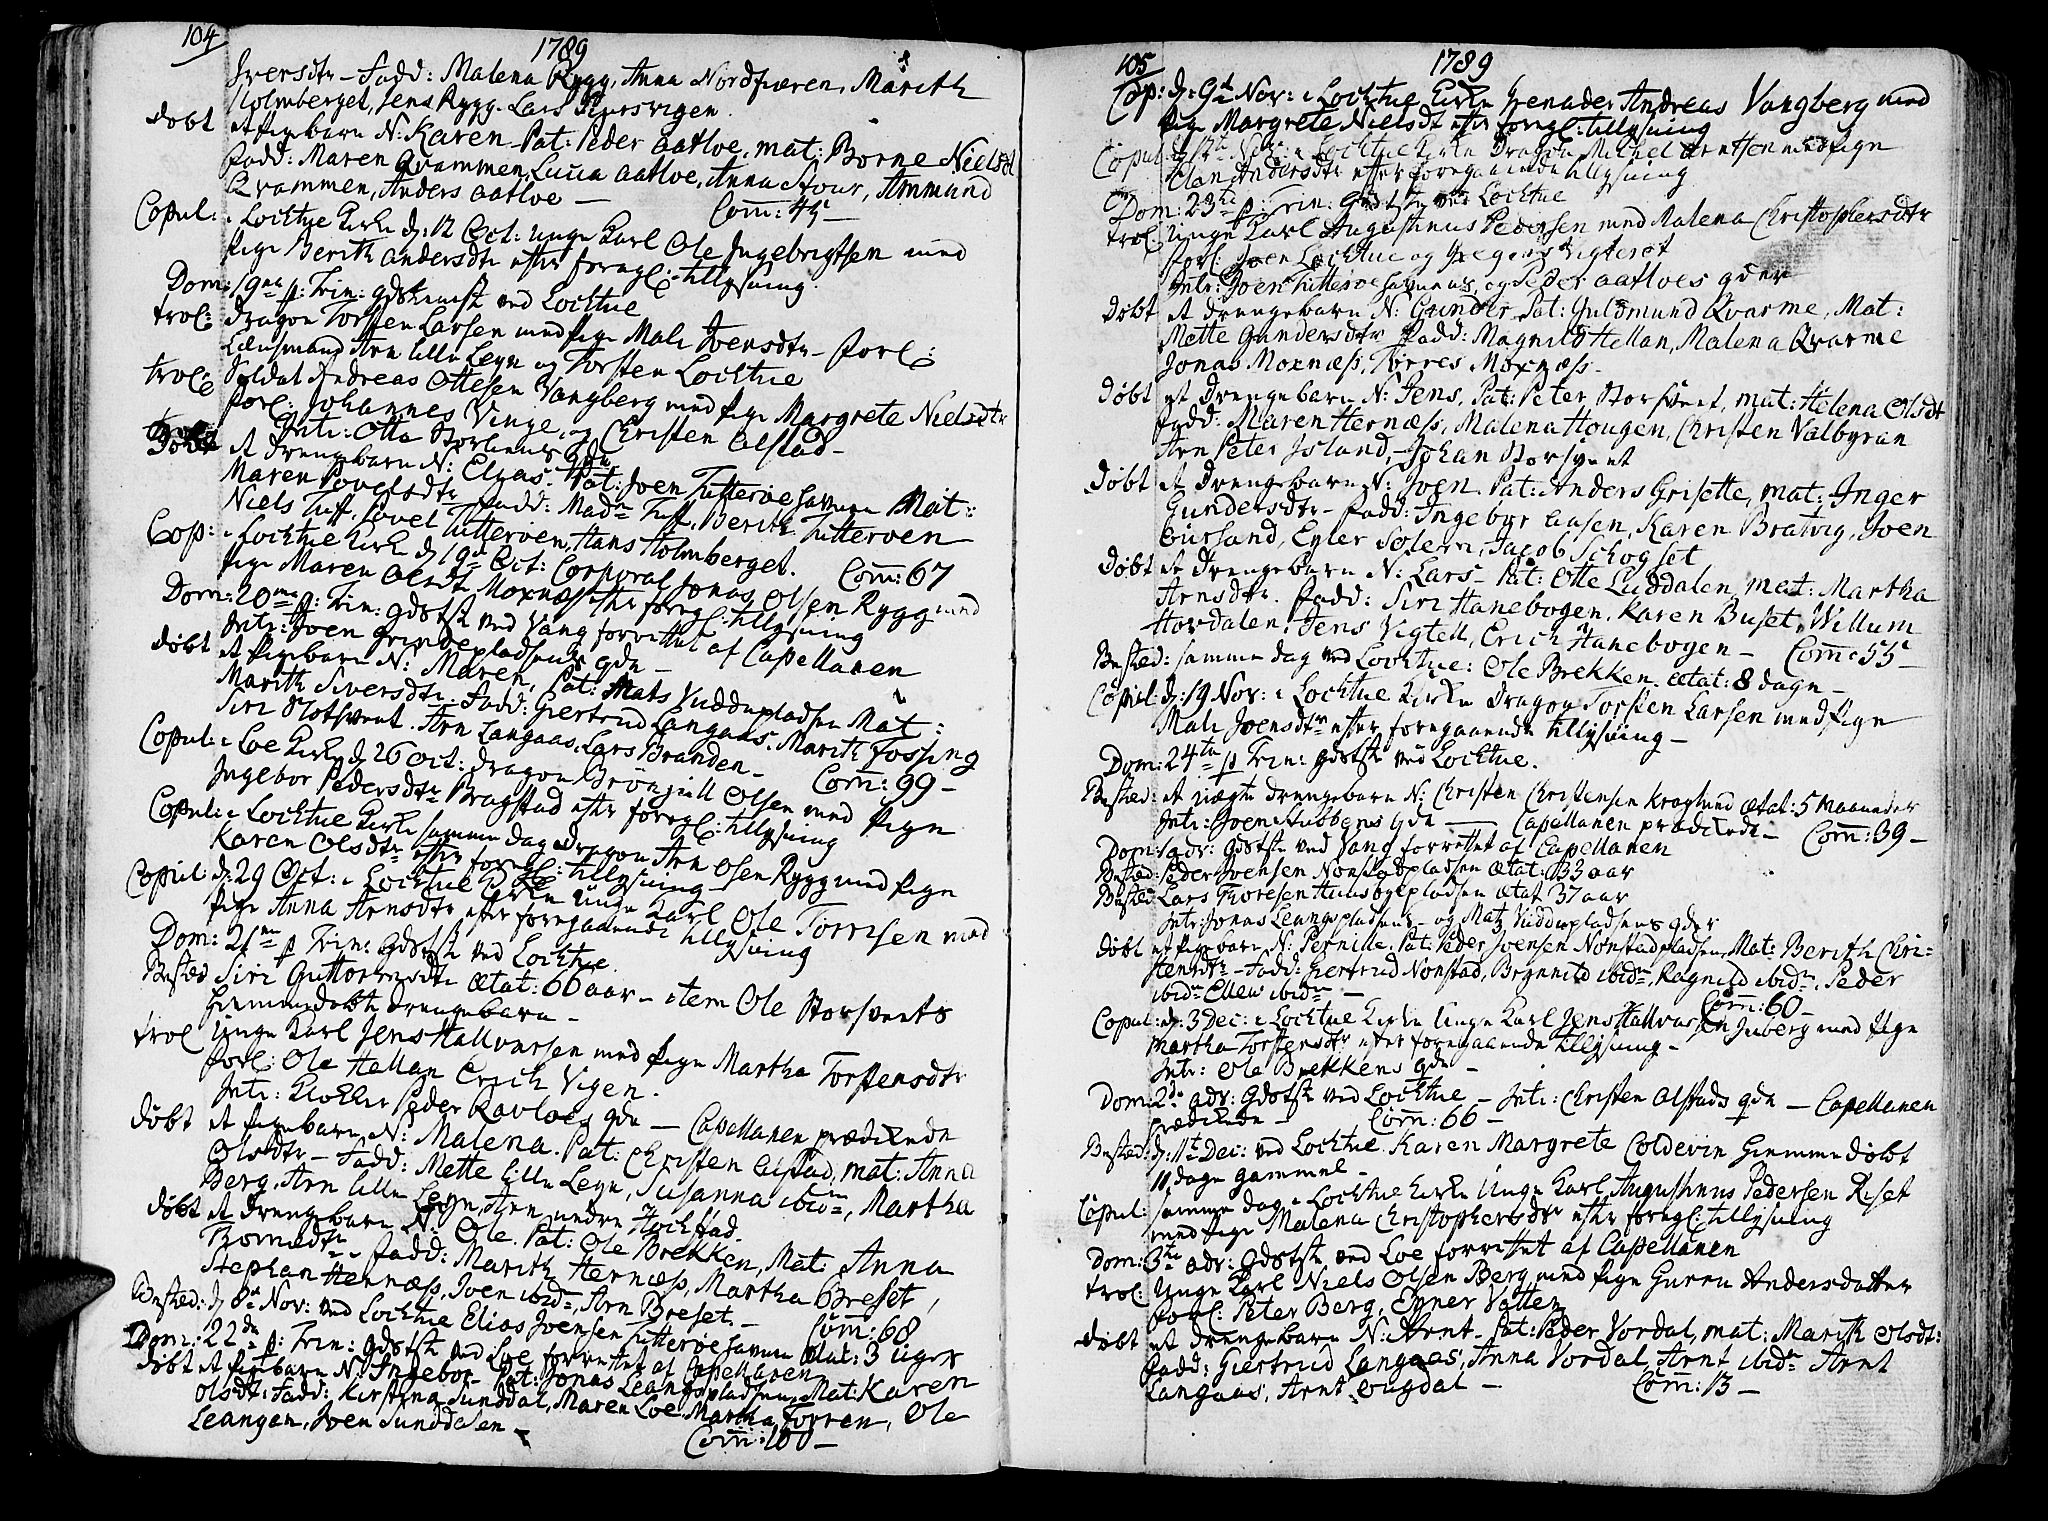 104
1789
Iversdtr - Fadd: Malena Rygg, Anna Nordfiæren, Marith
Holmberget, Jens Rygg. Lars
døbt et Pigebarn N: Karen. Pat: Peder Aatloe, mat: Borne Nielsdt
Fadd: Maren Qvammen, Lucia Aatloe, Anna Stour, Ammund
Qvammen, Anders Aatloe — Com: 45 —
Copul: i Lochtue Kirke d: 12 Oct: Unge Karl Ole Ingebrigtsen med
Pige Berith Andersdtr efter foregl: tillysning.
Dom: 19na p: Trin: gdstienest ved Lochtue
trol: Dragon Torsten Larsen med Pige Mali Joensdtr - forl:
Lensmand Arn lille Leyn og Torsten Lochtue
trol: Soldat Andreas Ottesen Vangberg med Pige Margrete Nielsdtr
forl: Johannes Vinge, og Christen Alstad -
Intr: Otte Storliens gdn
døbt et drengebarn N: Elias. Pat: Joen Tutterøe havnen Mat:
Maren Povelsdtr Fadd: Madn Tuff, Berith Tutterøen
Niels Tuff, Povel Tutterøen, Hans Holmberget. Com: 67
Cop: i Lochtue Kirke d 19d Oct: Corporal Jonas Olsen Rygg med
Pige Maren Olsdt Moxnæss efter foregl: tillysning
Dom: 20ma p: Trin: gdstst ved Vang forrettet af Capellanen
Intr: Joen Grindepladsens gdn -
døbt et Pigebarn N: Maren, Pat: Mats Vuddupladsen Mat:
Marith Siversdtr - Fadd: Giertrud Langaas, Marith Fossing
Siri Slotsvent. Arn Langaas, Lars Branden - Com: 99 -
Copul: i Loe Kirke d 26 Oct: Dragon Brönjull Olsen med Pige
Ingebor Pedersdtr Bragstad efter foregl: tillysning
Copul: i Lochtue Kirke samme dag Dragon Arn Olsen Rygg med Pige
Karen Olsdtr efter foregl: tillysning
Copul: d: 29 Oct: i Lochtue Kirke Unge Karl Ole Torrisen med
Pige Anna Arnsdtr efter foregaaende tillysning
Dom: 21ma p Trin: Gdstst ved Lochtue.
Bested Siri Guttormsdtr Ætat: 66 aar - item Ole Storsvents
hiemmedøbte drengebarn -
trol Unge Karl Jens Hallvarsen med Pige Martha Torstensdtr
forl: Ole Hallan Erich Vigen.
Intr: Klokker Peder Ravloes gdn — Capellanen prædikede
døbt et Pigebarn N: Malena. Pat: Christen Alstad, mat: Anna
Olsdtr - Fadd: Mette lille Leyn, Susanna ibidm, Martha
Berg, Arn lille Leyn, Arn nedre Hochstad.
døbt et drengebarn N: Ole. Pat: Ole Brekken, Mat: Anna
Tromsdtr - Fadd: Marith Hernæss, Martha Breset,
Stephan Hernæss, Joen ibidm, Arn Breset. - Com: 68
Bested: d 8de Nov: ved Lochtue Elias Joensen Tutterøe havnen Ætat: 3 Uger
Dom: 22de p: Trin: Gdstst ved Loe forrettet af Capellanen
døbt et Pigebarn N: Ingebor Pat: Jonas Leangspladsen, Mat: Karen
Olsdt: Fadd: Kirstina Sunddal, Maren Loe, Martha Forren, Ole
Leangan, Joen Sunddalen - Com: 100 —
105
1789
Cop: d: 9de Nov: i Lochtue Kirke Grenader Andreas Vangberg med
Pige Margrete Nielsdt efter foregl: tillysning
Copul: d 12te Nov: i Lochtue Kirke Dragon Michel Arntsen med Pige
Andersdtr efter foregaaende tillysning
Dom: 23de p: Trin: Gdstst ved Lochtue
trol: Unge Karl Augustinus Pedersen med Malena Christophersdtr
forl: Joen Lochtue og Gregers Vigteret
Intr: Joen Tutterøe havnens, og Peder Aatloes gdn
døbt et drengebarn N: Gunder Pat: Guldmund Qvarme, Mat:
Mette Gundersdtr Fadd: Magnild Hellan, Malena Qvarme
Jonas Moxnæss, Torres Moxnæss.
døbt et drengebarn N: Jens, Pat: Peter Storsvent, mat: Helena Olsdt
Fadd: Maren Hernæss, Malena Hougen, Christen Valbyran
Arn Peter Island, Johan Storsvent
døbt et drengebarn N: Joen. Pat: Anders Grisette, mat: Inger
Gundersdtr - Fadd: Ingebor Aasen, Karen Bratvig, Joen
Aursand, Eyler Solem, Jacob Schogset
døbt et drengebarn N: Lars - Pat: Otte Luddalen, mat: Martha
Arnsdtr. Fadd: Siri Hanebogen, Karen Buset, Willum
Hovdalen, Jens Vigtell, Erich Hanebogen - Com: 55 -
Bested: samme dag ved Lochtue: Ole Brekken. Ætat: 8 dage -
Copul: d: 19 Nov: i Lochtue Kirke Dragon Torsten Larsen med Pige
Mali Joensdtr efter foregaaende tillysning -
Dom: 24te p Trin: Gdstst ved Lochtue.
Bested: et uægte drengebarn N: Christen Christensen Kroglund Ætat: 5 Maaneder
Intr: Joen Stubbens gdn — Capellanen prædikede - Com: 39 -
Dom: 1 adv: Gdstst ved Vang forrettet af Capellanen
Bested: Peder Joensen Nonstadpladsen Ætat: 33 aar
Bested Lars Thoresen Hunsbyepladsen Ætat 37 aar
Intr: Jonas Leangspladsens - og Matz Vuddupladsens gdr
døbt et Pigebarn N: Pernille. Pat: Peder Joensen Nonstadpladsen, Mat: Berith Chri-
stensdtr - Fadd: Giertrud Nonstad, Brynnild ibidm, Ragnild ibidm, Peder
ibidm Ellev ibidm - Com: 60 -
Copul: d: 3 Dec: i Lochtue Kirke Unge Karl Jens Hallvarsen Juberg med Pige
Martha Torstensdtr efter foregaaende tillysning -
Intr: Ole Brekkens gdn -
Dom: 2de adv: Gdstst ved Lochtue - Intr: Christen Alstads gdn — Capellanen
prædikede - Com: 66 -
Bested: d: 11te Dec: ved Lochtue Karen Margrete Coldevin hiemmedøbt
11 dage gammel -
Copul: samme dag i Lochtue Kirke Unge Karl Augustinus Pedersen Reset
med Pige Malena Christophersdtr efter foregl: tillysning
Dom: 3tie adv: Gdstst ved Loe forrettet af Capellanen
trol: Unge Karl Niels Olsen Berg med Pige Gurru Andersdatter
forl: Peter Berg, Eyner Vatten
døbt et drengebarn N: Arnt - Pat: Peder Vordal, mat: Marith Olsdt:
Fadd: Giertrud Langaas, Anna Vordal, Arnt ibidm Arnt
Langaas, Arnt Augdal - Com: 13 -